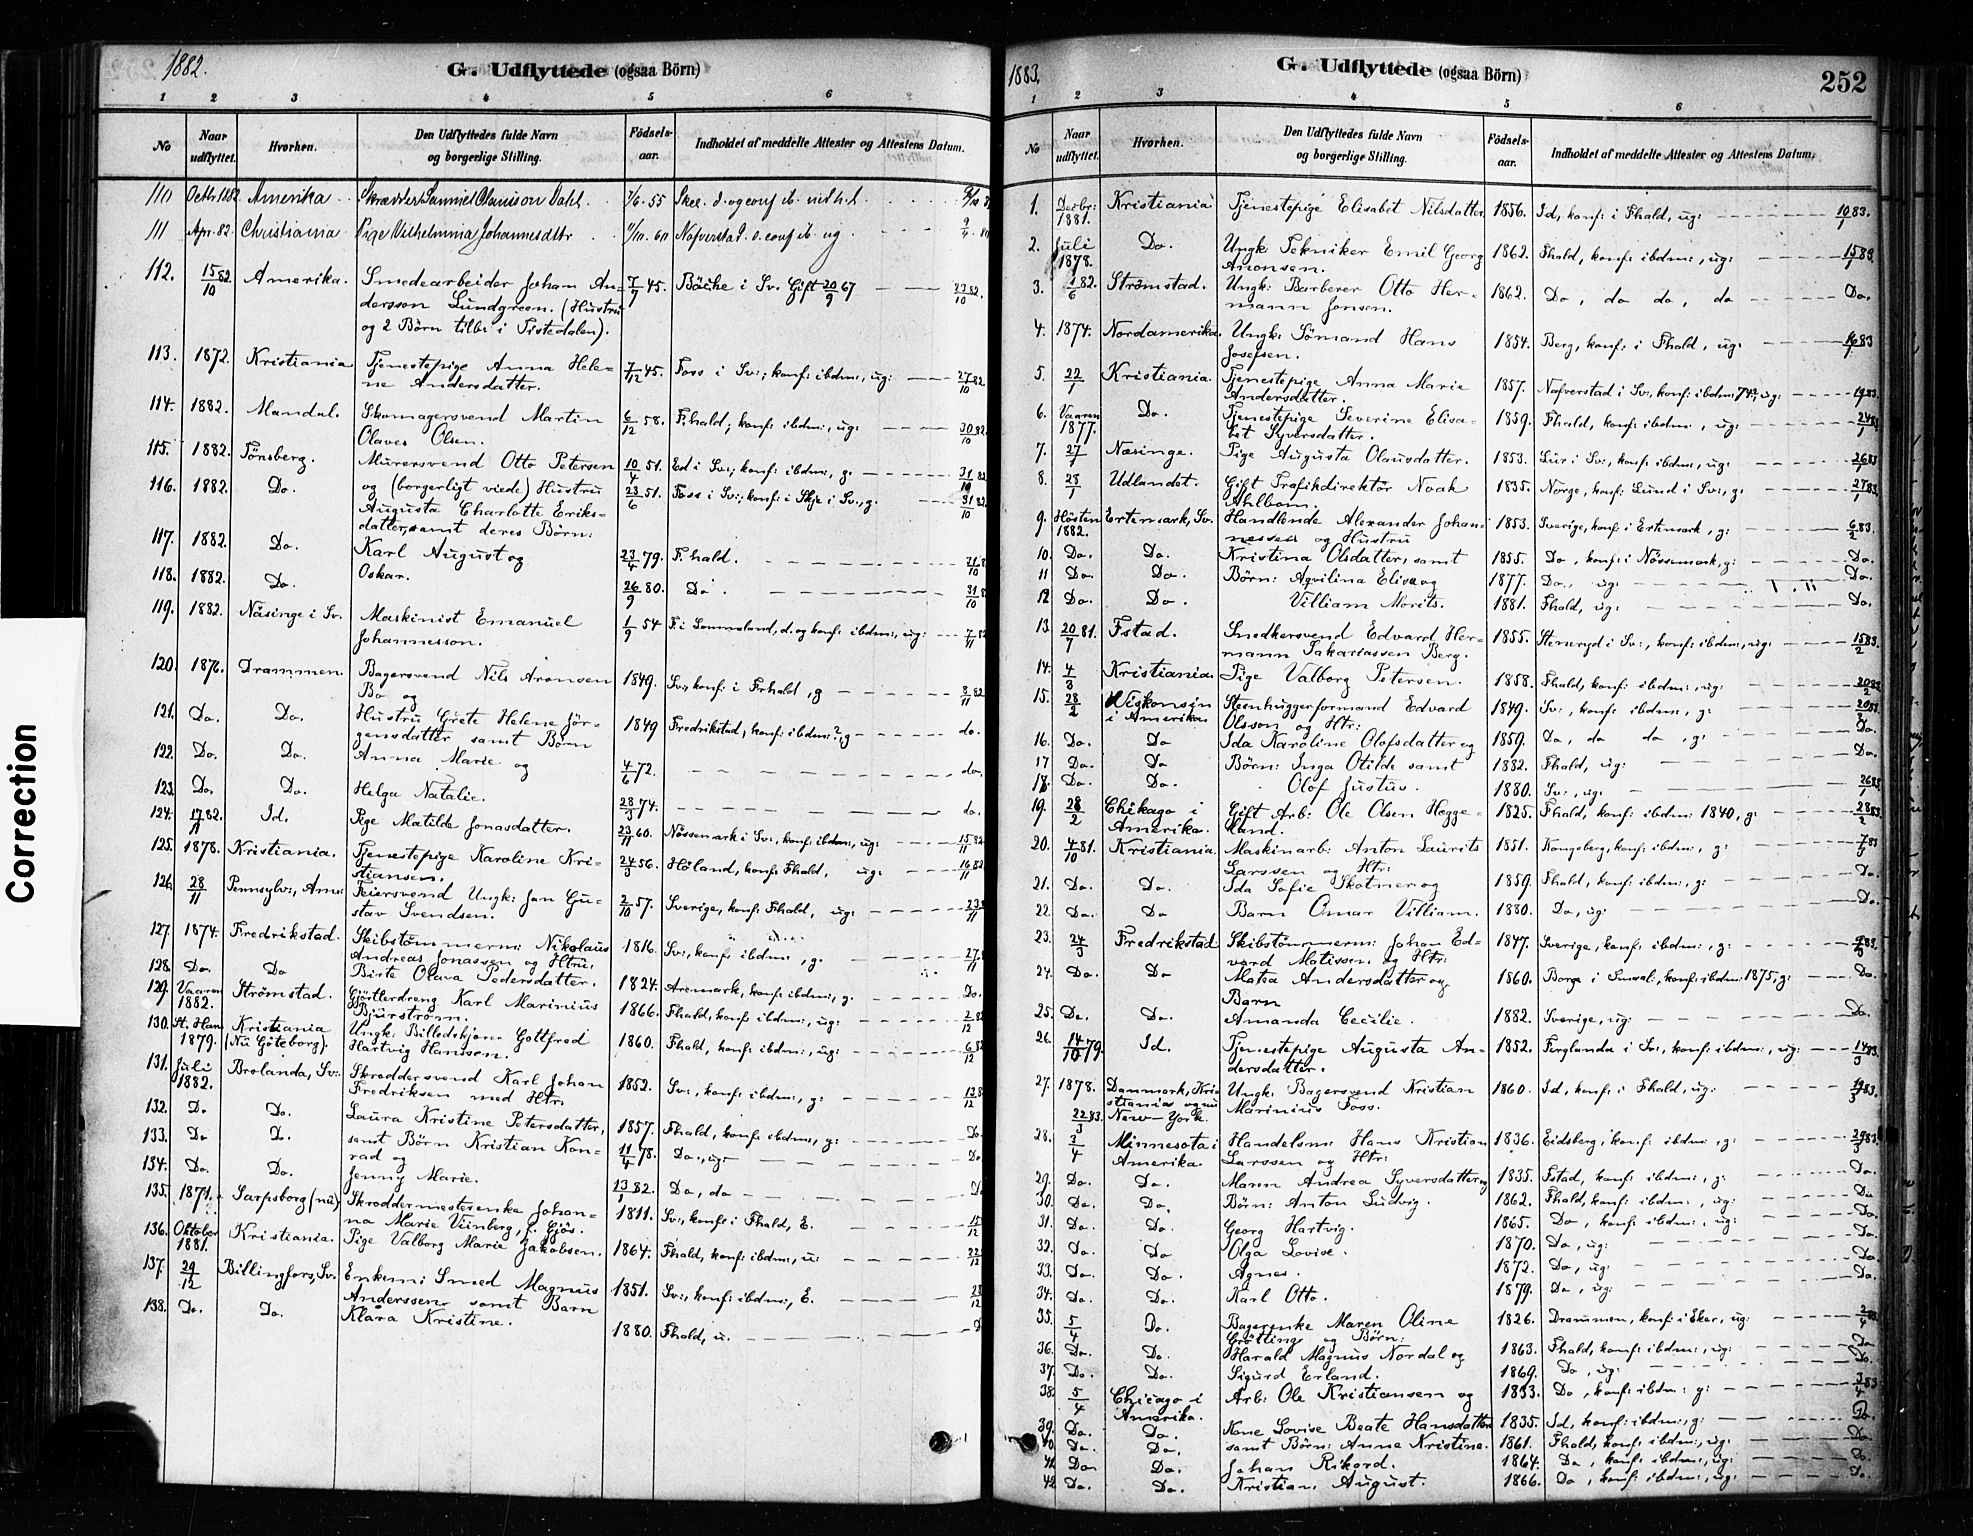 Correction
1882.
G. Udflyttede (ogsaa Börn)
1 2 3 4 5 6
No
Naar udflyttet.
Hvorhen.
Den Udflyttedes fulde Navn og borgerlige Stilling.
Födsels-aar.
Indholdet af meddelte Attester og Attestens Datum.
110 Octbr 1882 Amerika Skrædder Samuel Dahl. 7/6. 55
111 Apr. 82 Christiania Pige Vilhelmina Johannesdttr Nafverstad
112. 15/10 82 Amerika. Smedearbeider Johan An- 7/7 45. Bäcke i Sv. Gift 20/9 67 — — 23/10 82.
dersson Lundgreen. (Hustru
og 2 Börn tilbr i Tistedalen).
113. 1872. Kristiania Tjenestepige Anna Hele- 7/12 45. Foss i Sv:; konf: ibdm:, ug: — — 27/10 82
ne Andersdatter.
114. 1882. Mandal. Skomagersvend Martin 6/12 58. F.hald; konf: ibdm:, ug: — — 30/10 82.
Olaves Olsen.
115. 1882. Tönsberg. Murersvend Otto Petersen 10/4 51. Ed i Sv:; konf: ibdm:, g: — — 31/10 82
116. 1882. Do. og (borgerligt viede) Hustru 23/6 51. Foss i Sv:; konf: i Skje i Sv:, g: — 31/10 82
Augusta Charlotte Eriks-
datter, samt deres Börn:
117. 1882. Do. Karl August og 23/4 79. F.hald. — — 31/10 8
118. 1882. Do. Oskar. 26/9 80. Do. — — 31/10 8
119. 1882. Näsinge i Sv. Maskinist Emanuel 1/9 54 F. i Sommeland, d. og konf: ibdm:, ug: — 7/11 82
Johannesson.
120. 1876. Drammen Bagersvend Nils Aronsen 1849. Sv:, konf: i Frhald, g — — 8/11 82
Bo og
121. Do. Do. Hustru Grete Helene Jör- 1849 Fredrikstad, konf: ibdm:?, g — — do.
gensdatter samt Börn
122. Do. Do. Anna Marie og 4/6 72. — — do.
123. Do. Do. Helga Natalie. 28/3 74. — — do.
124. 17/11 82. Id. Pige Matilde Jonasdatter. 23/11 60. Nössemark i Sv:, konf: ibdm:, ug: — 15/11 82
125. 1878. Kristiania. Tjenestepige Karoline Kri- 24/3 56. Höland, konf: Fhald, ug: — — 16/11 82
stiansen.
126. 28/11 Pennsylv:, Am: Feiersvend Ungk: Jan Gu- 2/10 57. Sverige, konf: Fhald, ug: — — 23/11
stav Svendsen.
127. 1874. Fredrikstad. Skibstömmerm: Nikolaus 1816. Sv:, konf: ibdm:, g. — — 27/11
Andreas Jonassen og Htru:
128. Do. Do Birte Olava Pedersdatter. 1824. Aremark, konf: ibdm:, g. — — Do.
129. Vaaren 1882. Strömstad. Gjörtlerdreng Karl Marinius 1866. Fhald, konf: ibdm:, ug: — — 2/12 8
Bjürström.
130. St. Han 1879. Kristiania (Nu Göteborg). Ungk: Billedskjærer Gottfred 1860. Fhald, konf: ibdm:, ug: — — 6/12 8
Hartvig Hanssen.
131. Juli 1882. Brolanda, Sv: Skræddersvend Karl Johan 1852. Sv:, konf: ibdm:, g: — — 13/12 8
Fredriksen med Htr:
132. D. Do. Laura Kristine Petersdatter, 1857. Fhald, konf: ibdm:, g: — — Do
133. Do Do. samt Börn Kristian Kon- 11/4 78. Do., ug: — — Do
rad og
134. Do. Do. Jenny Marie. 13/1 82. Do, do — — D
135. 1871. Sarpsborg (nu) Skræddermesterenke Johan- 1811. Sv:, konf: i Fhald, E. — — 15/12
na Marie Viinberg, f. Gjös.
136. Oktober 1881. Kristiania. Pige Valborg Marie Jakobsen. 1864. Fhald, konf: ibdm:, u: — — 22/12
137. 29/12 Billingfors, Sv. Enkem: Smed Magnus 1851. Sv:, konf: ibdm:, E. — — 28/12
Anderssen, samt Barn
138. Do. Do. Klara Kristine. 1880. Fhald, u. — — D
1883.
G. Udflyttede (ogsaa Börn)
252
1 2 3 4 5 6
No
Naar udflyttet.
Hvorhen.
Den Udflyttedes fulde Navn og borgerlige Stilling.
Födsels-aar.
Indholdet af meddelte Attester og Attestens Datum.
1. Decbr: 1881. Kristiania Tjenestepige Elisabet Nilsdatter 1856. Id, konf: i Fhald, ug: — — 10/1 83.
2. Juli 1878. Do. Ungk: Tekniker Emil Georg 1862. Fhald, konf: ibdm:, ug: — — 15/1 83.
Aronsen.
3. 1/6 82. Strömstad. Ungk: Barberer Otto Her- 1862. Do, do do, do — — Do.
mann Jonsen.
4. 1874. Nordamerika. Ungk: Sömand Hans 1854. Berg, konf: i Fhald, ug: — — 16/1 83
Josefsen.
5. 22/1 Kristiania. Tjenestepige Anna Marie 1857. Nafverstad i Sv:, konf: ibdm: 742, ug: — 19/1 83.
Andersdatter.
6. Vaaren 1877. Do. Tjenestepige Severine Elisa- 1859. Fhald, konf: ibdm:, ug: — — 24/1 83
bet Syversdatter.
7. 27/1 Næsinge. Pige Augusta Olausdatter. 1853. Lur i Sv:, konf: ibdm:, ug: — — 26/1 83
8. 28/1 Udlandet. Gift Trafikdirektör Noak 1835. Norge, konf: Lund i Sv:, g: — — 27/1 83.
Ahlbom.
9. Hösten 1882. Ertemark, Sv. Handlende Alexander Johan- 1853. Sverige, konf: i Ertemark, g: — 6/2 83.
nessen og Hustru
10. Do. Do. Kristina Olsdatter, samt 1855. Do, konf: i Nössemark, g: — Do.
11 Do. Do. Börn: Agvilina Elise og 1877. Do., ug: — — Do.
12 Do. Do. Villiam Morits. 1881. Fhald, ug: — — Do.
13. 20/7 81. Fstad. Snedkersvend Edvard Her- 1855. Steneryd i Sv:, konf: ibdm:, ug: — 15/2 83.
mann Sakariassen Berg.
14. 4/3 Kristiania. Pige Valborg Petersen. 1858. Fhald, konf: ibdm:, ug: — — 20/2 83
15. 28/2 Wiskonsin i Amerika. Stenhuggerformand Edvard 1849. Sv:, konf: ibdm:, g: — — 20/2 83.
Olsson og Htr:
16. Do. Do Ida Karoline Olofsdatter og 1859. Do, do do, g: — — Do.
17 Do. Do Börn: Inga Otilde samt 1882. Fhald, ug: — — Do.
18. Do. Do. Olof Justus. 1880. Sv:, ug: — — 26/2 83
19. 28/2 Chikago i Amerika. Gift Arb: Ole Olsen Hægge- 1825. Fhald, konf: ibdm: 1840, g: — — 28/2 83.
land.
20. 4/10 81. Kristiania. Maskinarb: Anton Laurits 1851. Kongsberg, konf: ibdm:, g: — — 7/3 83
Larssen og Htr:
21. Do. Do. Ida Sofie Skotner og 1859. Fhald, konf: ibdm:, g: — — Do.
22. Do. Do Barn Omar Villiam. 1880. Do, ug: — — Do.
23. 24/3 Fredrikstad Skibstömmerm: Johan Ed- 1847. Sverige, konf: ibdm:, g: — — 9/3 83.
vard Matissen og Htr:
24. Do. Do Matea Andersdatter og 1860. Borge i Smaal:, konf: ibdm: 1875, g: — Do.
Barn
25. Do. Do. Amanda Cecilie. 1882. Sverige, ug: — — Do.
26. 14/10 79. Id. Tjenestepige Augusta An- 1852. Ferglanda i Sv:, konf: ibdm:, ug: — 14/3 83.
dersdatter.
27. 1878. Danmark, Kri- Ungk: Bagersvend Kristian 1860. Id, konf: i Fhald, ug: — — 19/3 83.
stiania og nu Marinius Foss.
22/3 83. New-York.
28. 3/4 Minnesota i Amerika. Handelsm: Hans Kristian 1836. Eidsberg, konf: ibdm:, g: — — 29/3 83.
Larssen og Htr:
29. Do. Do. Maren Andrea Syversdatter og 1835. Fstad, konf: ibdm:, g: — Do.
30. Do. Do. Börn: Anton Ludvig. 1862. Fhald, konf: ibdm:, ug: — Do
31. Do. Do. Georg Hartvig. 1865. Do, konf: ibdm:, ug: — Do.
32. Do. Do Olga Lovise. 1870. Do, ug: — — Do.
33. Do. Do. Agnes. 1872. Do, ug: — — Do.
34. Do. Do. Karl Otto. 1879. Do, ug: — — Do.
35. 5/4 Do. Bagerenke Maren Oline 1826. Drammen, konf: i Eker, ug: — 2/4 83.
Grötting og Börn:
36. Do. Do. Harald Magnus Nordal og 1863. Fhald, konf: ibdm:, ug: — — Do
37. Do. Do. Sigurd Erland. 1869. Do, ug: — — Do.
38. 5/4 Chicago i Amerika. Arb: Ole Kristiansen og 1833. Do, konf: ibdm: g: — — 3/4 83
39. Do. Do. Kone Lovise Beate Hansdatter 1835. Id, konf: ibdm:, g: — — Do.
40. Do. Do. samt Börn: Anna Kristine. 1861. Fhald, konf: ibdm:, ug: — — Do.
41 Do. Do. Johan Rikard. 1864. Do, konf: ibdm:, ug: — — Do.
42 Do. Do. Kristian August. 1866. Do, konf: ibdm:, ug: — — Do.